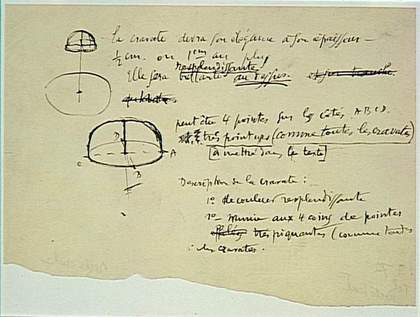 - la cravate devra son élégance à son épaisseur -
1/2 cm. ou 1cm au plus
resplendissante
Elle sera brillante au dessus.
peut être 4 pointes sur les côtés A B C D.
très pointues (comme toutes les cravates)
[à mettre dans le texte]
A
B
C
D
Description de la cravate :
1º de couleur resplendissante
2º munie aux 4 coins de pointes
effilées très piquantes (comme toutes
les cravates.